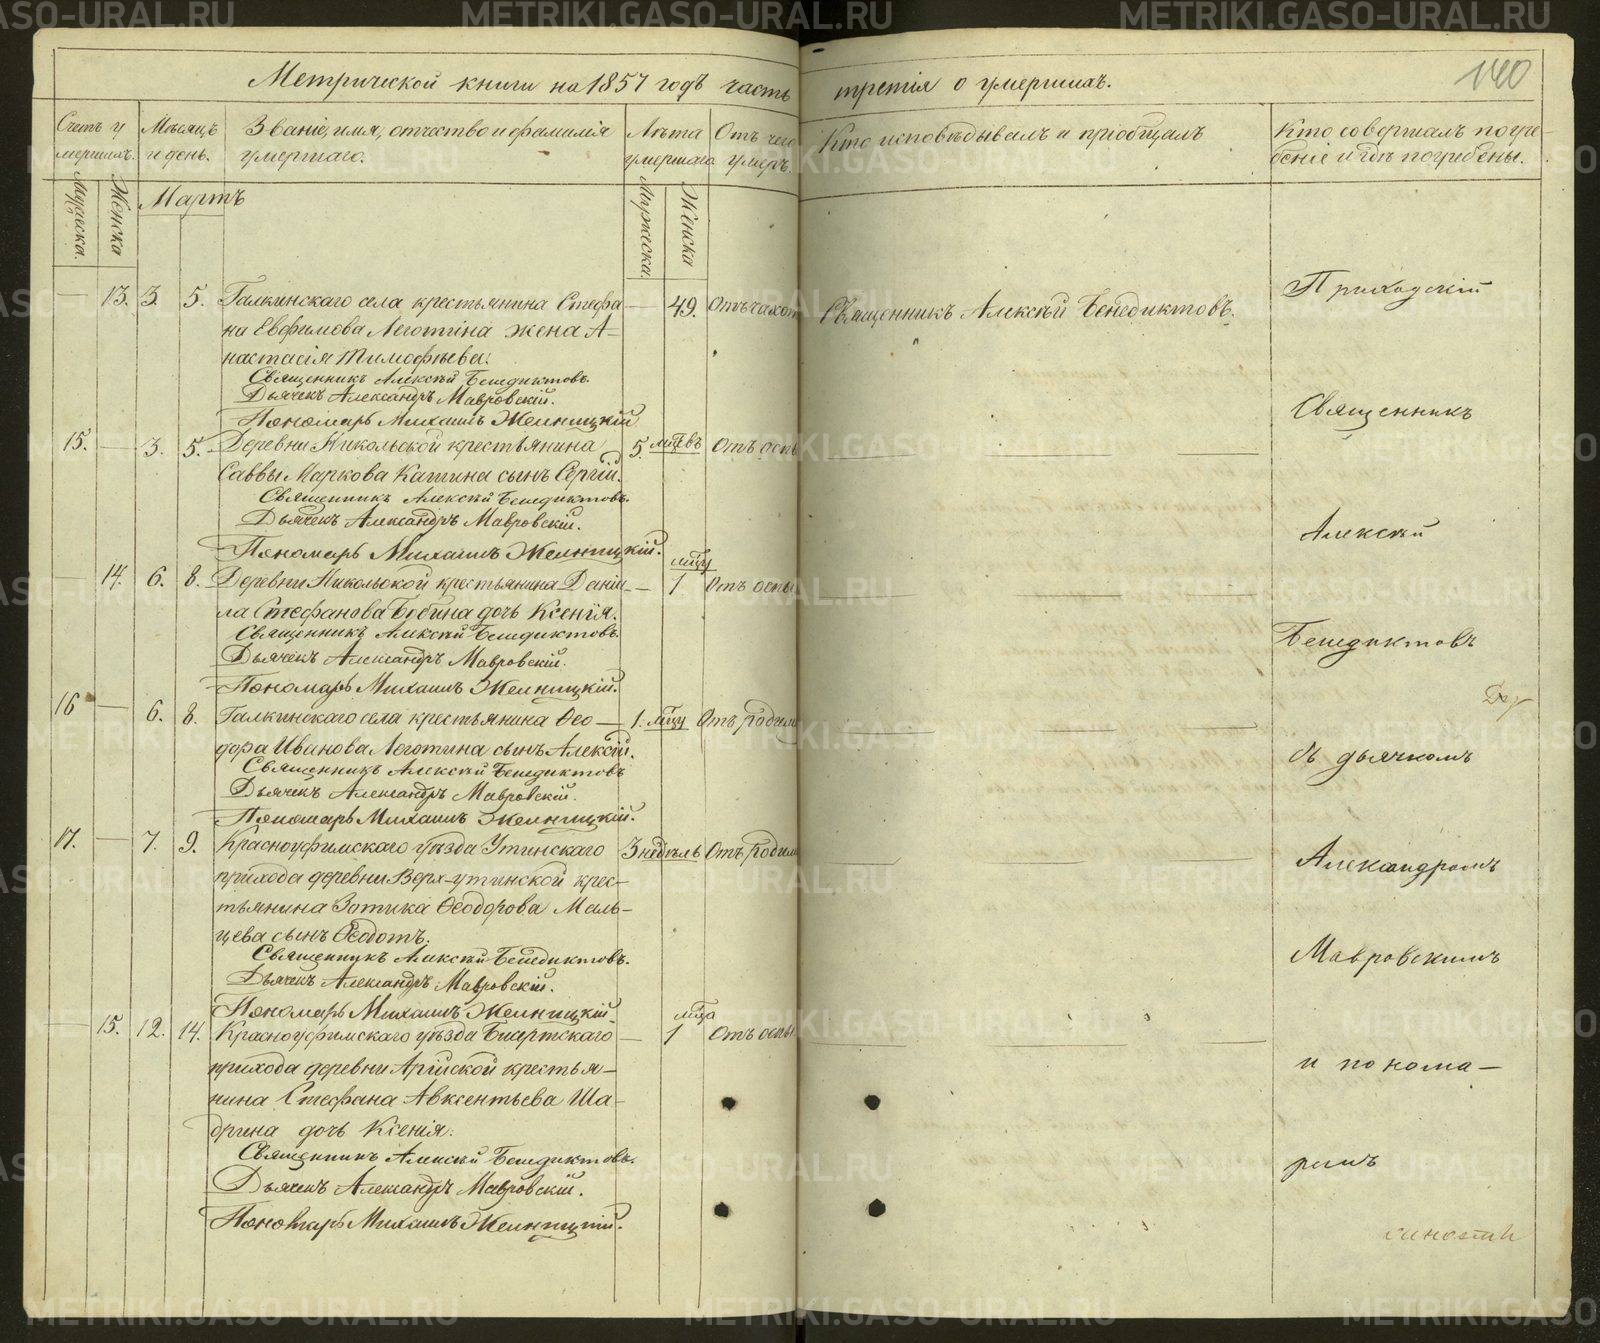 Метрической книги на 1857 годъ часть третія о умершихъ.
140
Счетъ у
мершихъ.
Мѣсяцъ
и день.
Званіе, имя, отчество и фамилія
умершаго.
Лѣта
умершаго
Отъ чего
умеръ.
Кто исповѣдывалъ и пріобщалъ
Кто совершалъ погре-
беніе и гдѣ погребены.
Мужеска.
Женска
Мартъ
Мужеска.
Женска
13. 3. 5. Галкинскаго села крестьянина Стефа- 49. Отъ чахот
на Евфимова Логотина жена А-
настасія Тимофѣева.
Священникъ Алексѣй Бенедиктовъ.
Дьячекъ Александръ Мавровскій.
Пономарь Михаилъ Желницкій
Священникъ Алексѣй Бенедиктовъ.
15. 3. 5. Деревни Никольской крестьянина 5. мцевъ Отъ оспы
Саввы Маркова Катина сынъ Сергій.
Священникъ Алексѣй Бенедиктовъ.
Дьячекъ Александръ Мавровскій.
Пономарь Михаилъ Желницкій.
14. 6. 8. Деревни Никольской крестьянина Даніи- 1 мцу Отъ оспы
ла Стефанова Бобина дочь Ксенія.
Священникъ Алексѣй Бенедиктовъ.
Дьячекъ Александръ Мавровскій.
Пономарь Михаилъ Желницкій.
16 6. 8. Галкинскаго села крестьянина Ѳео- 1. мцу Отъ родим
дора Иванова Логотина сынъ Алексій.
Священникъ Алексѣй Бенедиктовъ
Дьячекъ Александръ Мавровскій.
Пономарь Михаилъ Желницкій.
17. 7. 9. Красноуфимскаго уѣзда Утинскаго 3 недѣль Отъ родим
прихода деревни Верх-утинской крес-
тьянина Зотика Ѳеодорова Маль-
цева сынъ Ѳеодотъ.
Священникъ Алексѣй Бенедиктовъ.
Дьячекъ Александръ Мавровскій.
Пономарь Михаилъ Желницкій.
15. 12. 14. Красноуфимскаго уѣзда Биартскаго 1 мца Отъ оспы
прихода деревни Арійской крестья-
нина Стефана Авксентьева Ша-
дрина дочь Ксенія.
Священникъ Алексѣй Бенедиктовъ.
Дьячекъ Александръ Мавровскій.
Пономарь Михаилъ Желницкій.
Приходскій
Священникъ
Алексѣй
Бенедиктовъ
съ дьячкомъ
Александромъ
Мавровскимъ
и понома-
ремъ
METRIKI.GASO-URAL.RU